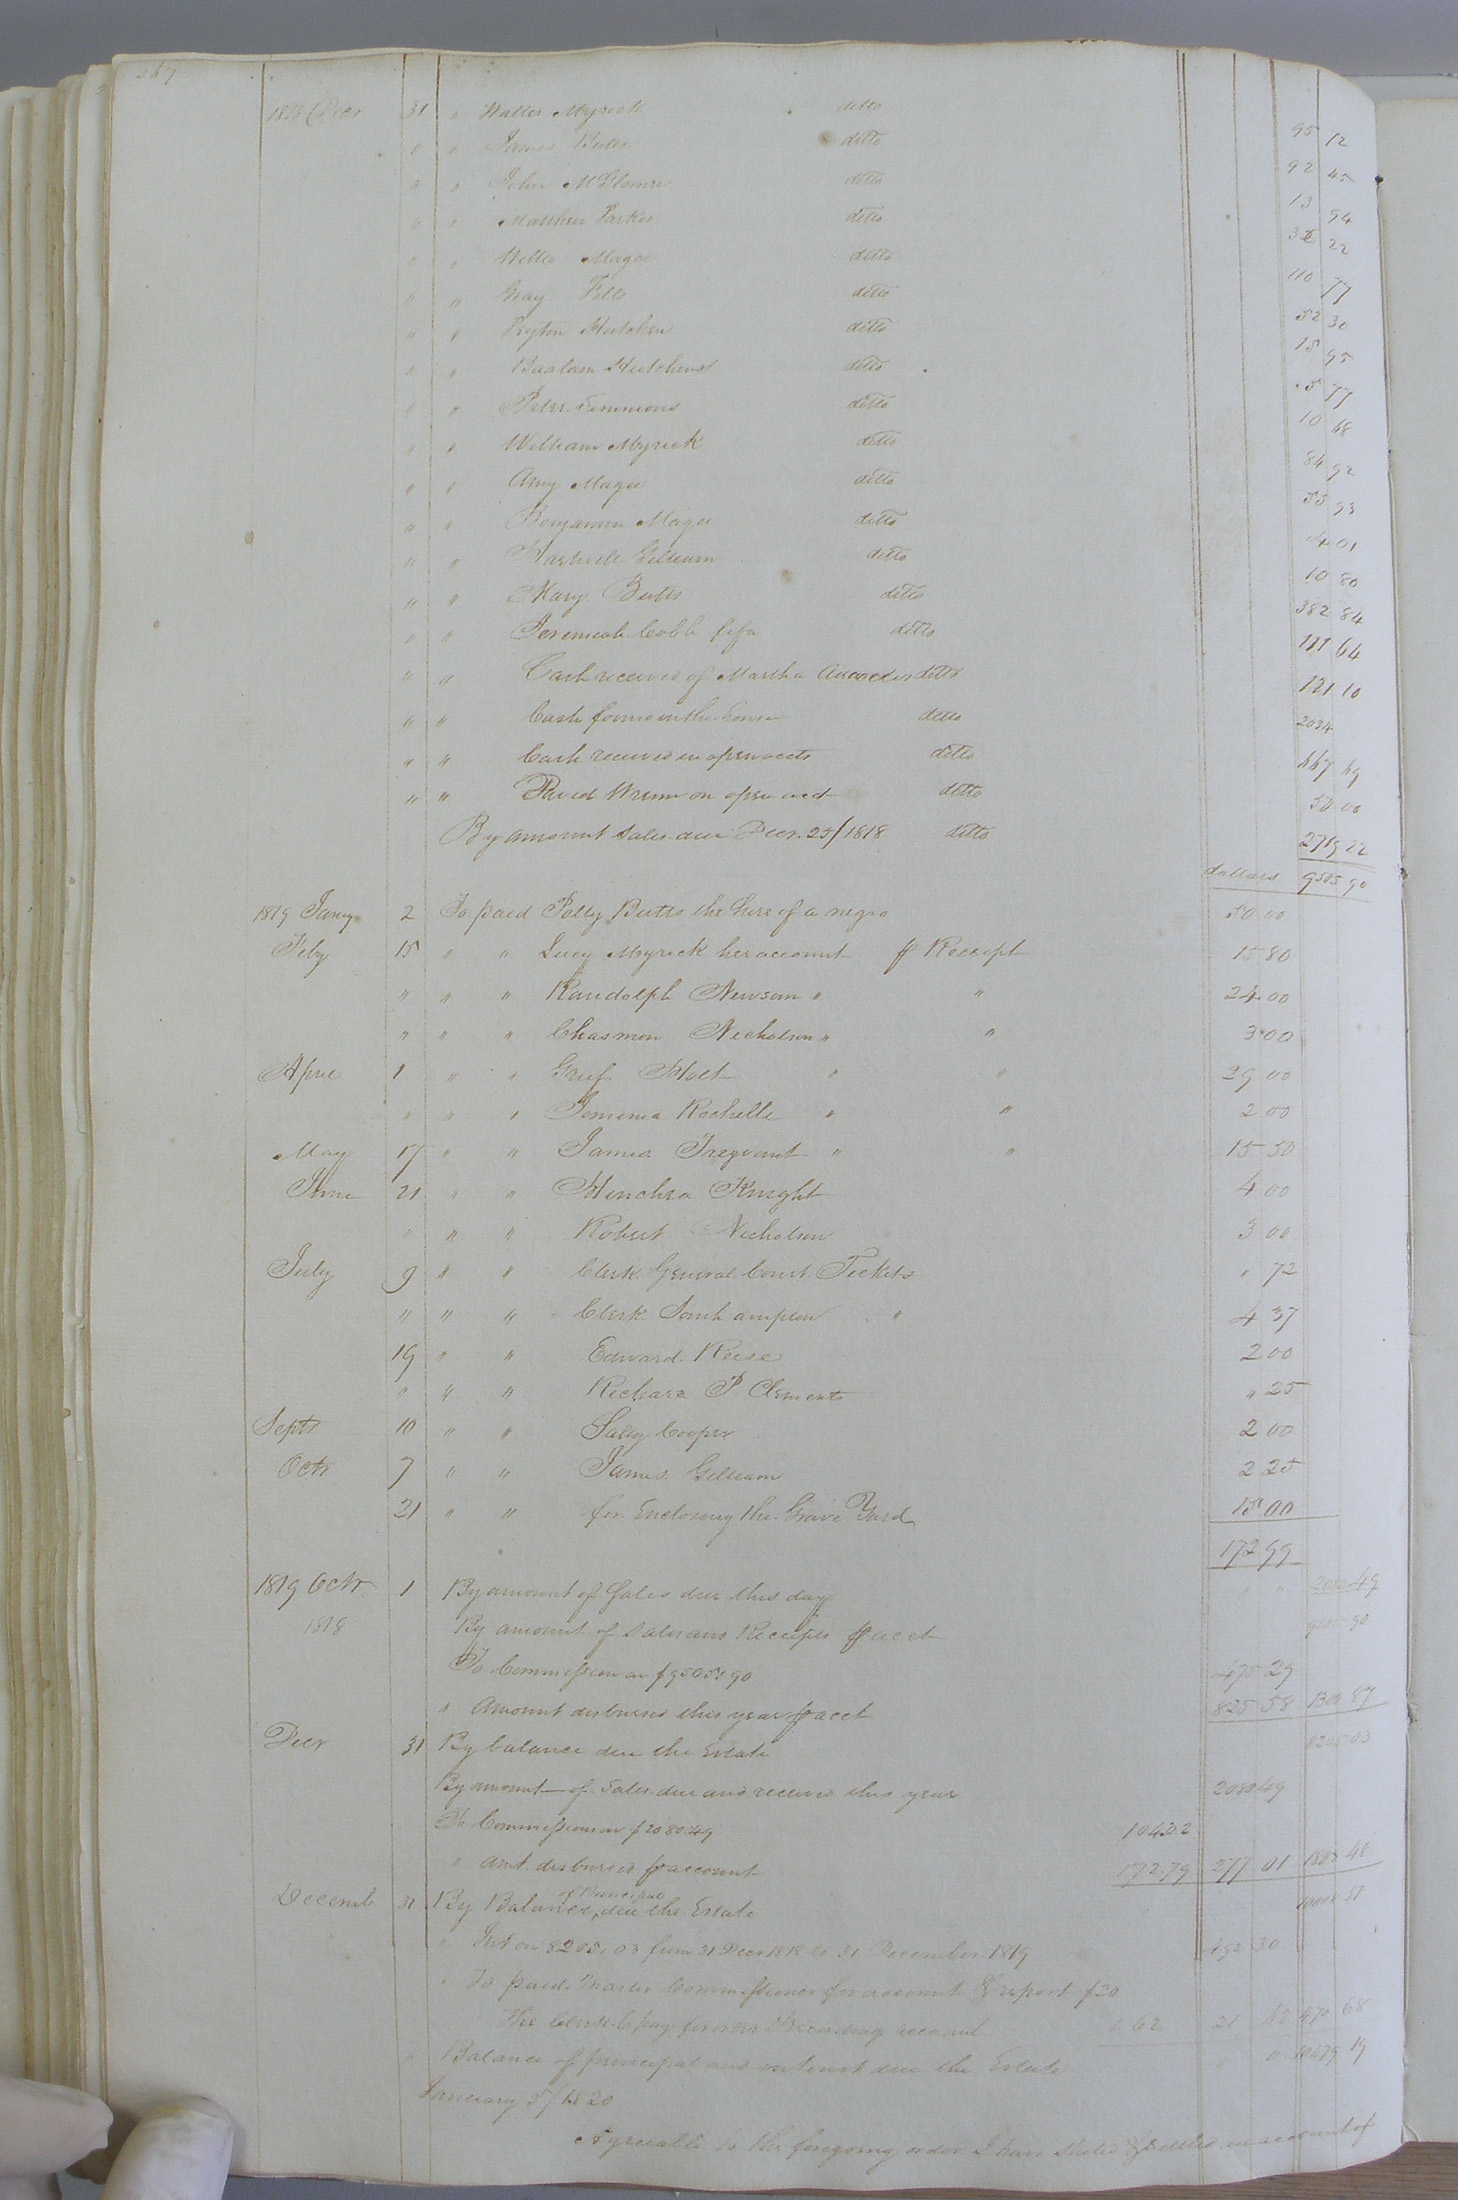 267
1818 Decr 31 " Walter Myrick ditto 95 12
" " James Butts ditto 92 45
" " John McLemore ditto 13 94
" " Matthew Parker ditto 22
" " Magee ditto 110 77
" " Gray Felts ditto 52 30
" " Peyton Hutchens ditto 15 95
" " Baalam Hutchens ditto 5 77
" " Peter Simmons ditto 10 48
" " William Myrick ditto 84 92
" " Amy Magee ditto 55 93
" " Benjamin Magee ditto 4 01
" " Hartwell Gilliam ditto 10 80
" " Mary Butts ditto 382 84
" " Jeremiah Cobb fifa ditto 111 64
" " Cash received of Martha ditto 121 10
" " Cash found in the house ditto 2034
" " Cash received in open accts ditto 447 49
" " David Wrenn on open acct ditto 50 00
By amount Sales due Decr. 25/1818 ditto 2719 22
dollars 9505 90
1819 Jany 2 To paid Polly Butts the hire of a negro 50 00
Feby 15 " " Lucy Myrick her account p Receipt 15 80
" " " Randolph Newsom " " 24 00
" " " Chasmon Nicholson " " 3 00
April 1 " " Greif Holt " " 29 00
" " " Jemima Rochelle " " 2 00
May 17 " " James Trezvant " " 15 50
June 21 " " Hinchea Knight 4 00
" " " Robert Nicholson 3 00
July 9 " " Clerk General Court Tickets " 72
" " " Clerk Southampton " 4 37
19 " " Edward Reese 2 00
" " " Richard P Clements " 25
Septr 10 " " Sally Cooper 2 00
Octr 7 " " James Gilliam 2 25
21 " " for Enclosing the Grave Yard 15 00
172 99
1819 Octr 1 By amount of Sales due this day " " 2080 49
1818 By amount of Sales and Receipts p acct 9505 90
To Commission on $9505.90 475 29
" Amount disbursed this year p acct 825 58 1300 87
Decr 31 By balance due the Estate 8205 03
By amount of Sales due and received this year 2080 49
To Commission on $2080.49 104.02
" amt. disbursed p account 172.79 277 01 1803 48
Decemb 31 By Balance of Principal due the Estate 10008 51
" Int on 8205.03 from 31 Decr 1818 to 31 December 1819 492 30
" To paid Master Commissioner for account & report $20
The Clerk Copy for order & Recording account 1.62 21 62 470 68
" Balance of principal and interest due the Estate " " 10479 19
January 5/1820
Agreeable to the foregoing order I have Stated & Settled an account of